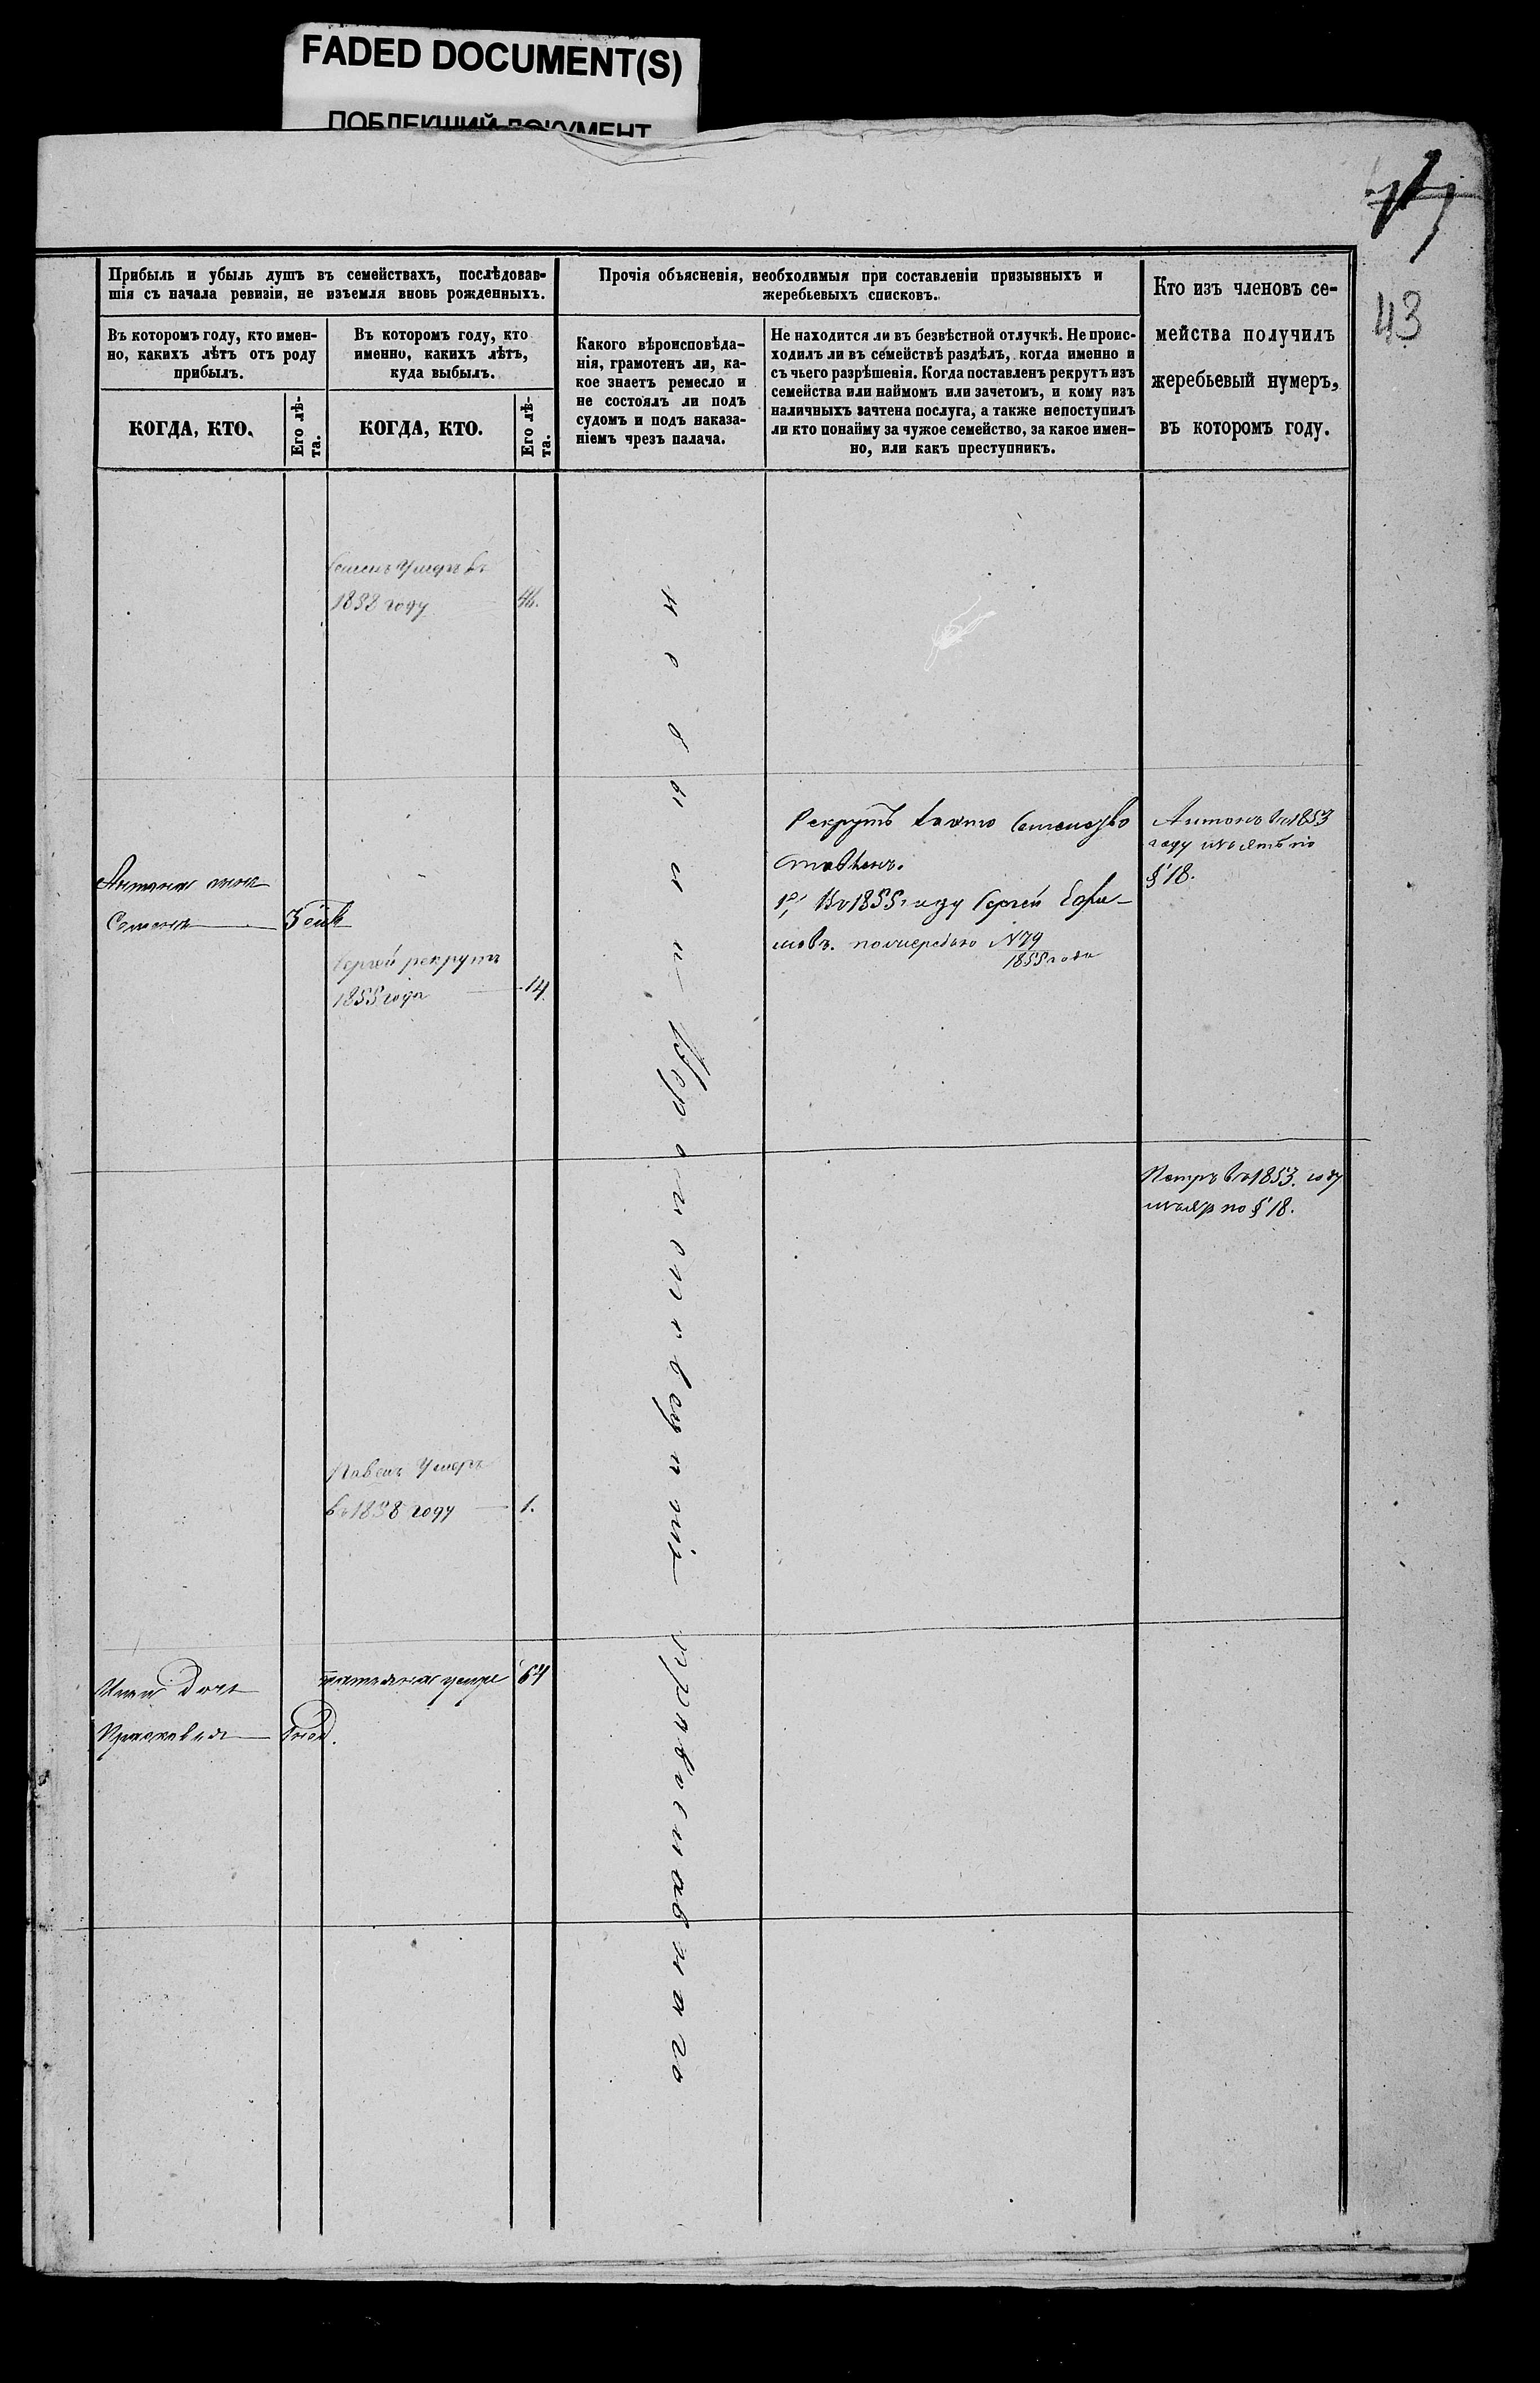 FADED DOCUMENT(S)
ПОБЛЕКШИЙ ДОКУМЕНТ
43
Прибыль и убыль душъ въ семействахъ, послѣдовав-
шія съ начала ревизіи, не изъемля вновь рожденныхъ.
Въ которомъ году, кто имен-
но, какихъ лѣтъ отъ роду
прибылъ.
КОГДА, КТО.
Его лѣ-
та.
Въ которомъ году, кто
именно, какихъ лѣтъ,
куда выбылъ.
КОГДА, КТО.
Его лѣ-
та.
Прочія объясненія, необходимыя при составленіи призывныхъ и
жеребьевыхъ списковъ.
Какого вѣроисповѣда-
нія, грамотенъ ли, ка-
кое знаетъ ремесло и
не состоялъ ли подъ
судомъ и подъ наказа-
ніемъ чрезъ палача.
Не находится ли въ безвѣстной отлучкѣ. Не проис-
ходилъ ли въ семействѣ раздѣлъ, когда именно и
съ чьего разрѣшенія. Когда поставленъ рекрутъ изъ
семейства или наймомъ или зачетомъ, и кому изъ
наличныхъ зачтена послуга, а также непоступилъ
ли кто понайму за чужое семейство, за какое имен-
но, или какъ преступникъ.
Кто изъ членовъ се-
мейства получилъ
жеребьевый нумеръ,
въ которомъ году.
Умеръ въ
1858 году 46.
Антона
Семенъ
Сергей рекрутъ
1855 года 14.
Рекрутъ
ставленъ.
1е, Въ 1855 году Сергей Ефи-
мовъ. №79
1855 года
Антонъ въ 1853
году изъятъ по
§ 18.
Петръ въ 1853. году
изъятъ по § 18.
Павелъ Умеръ
въ 1858 году 1.
Дочь
Прасковья
татьяна умре 64